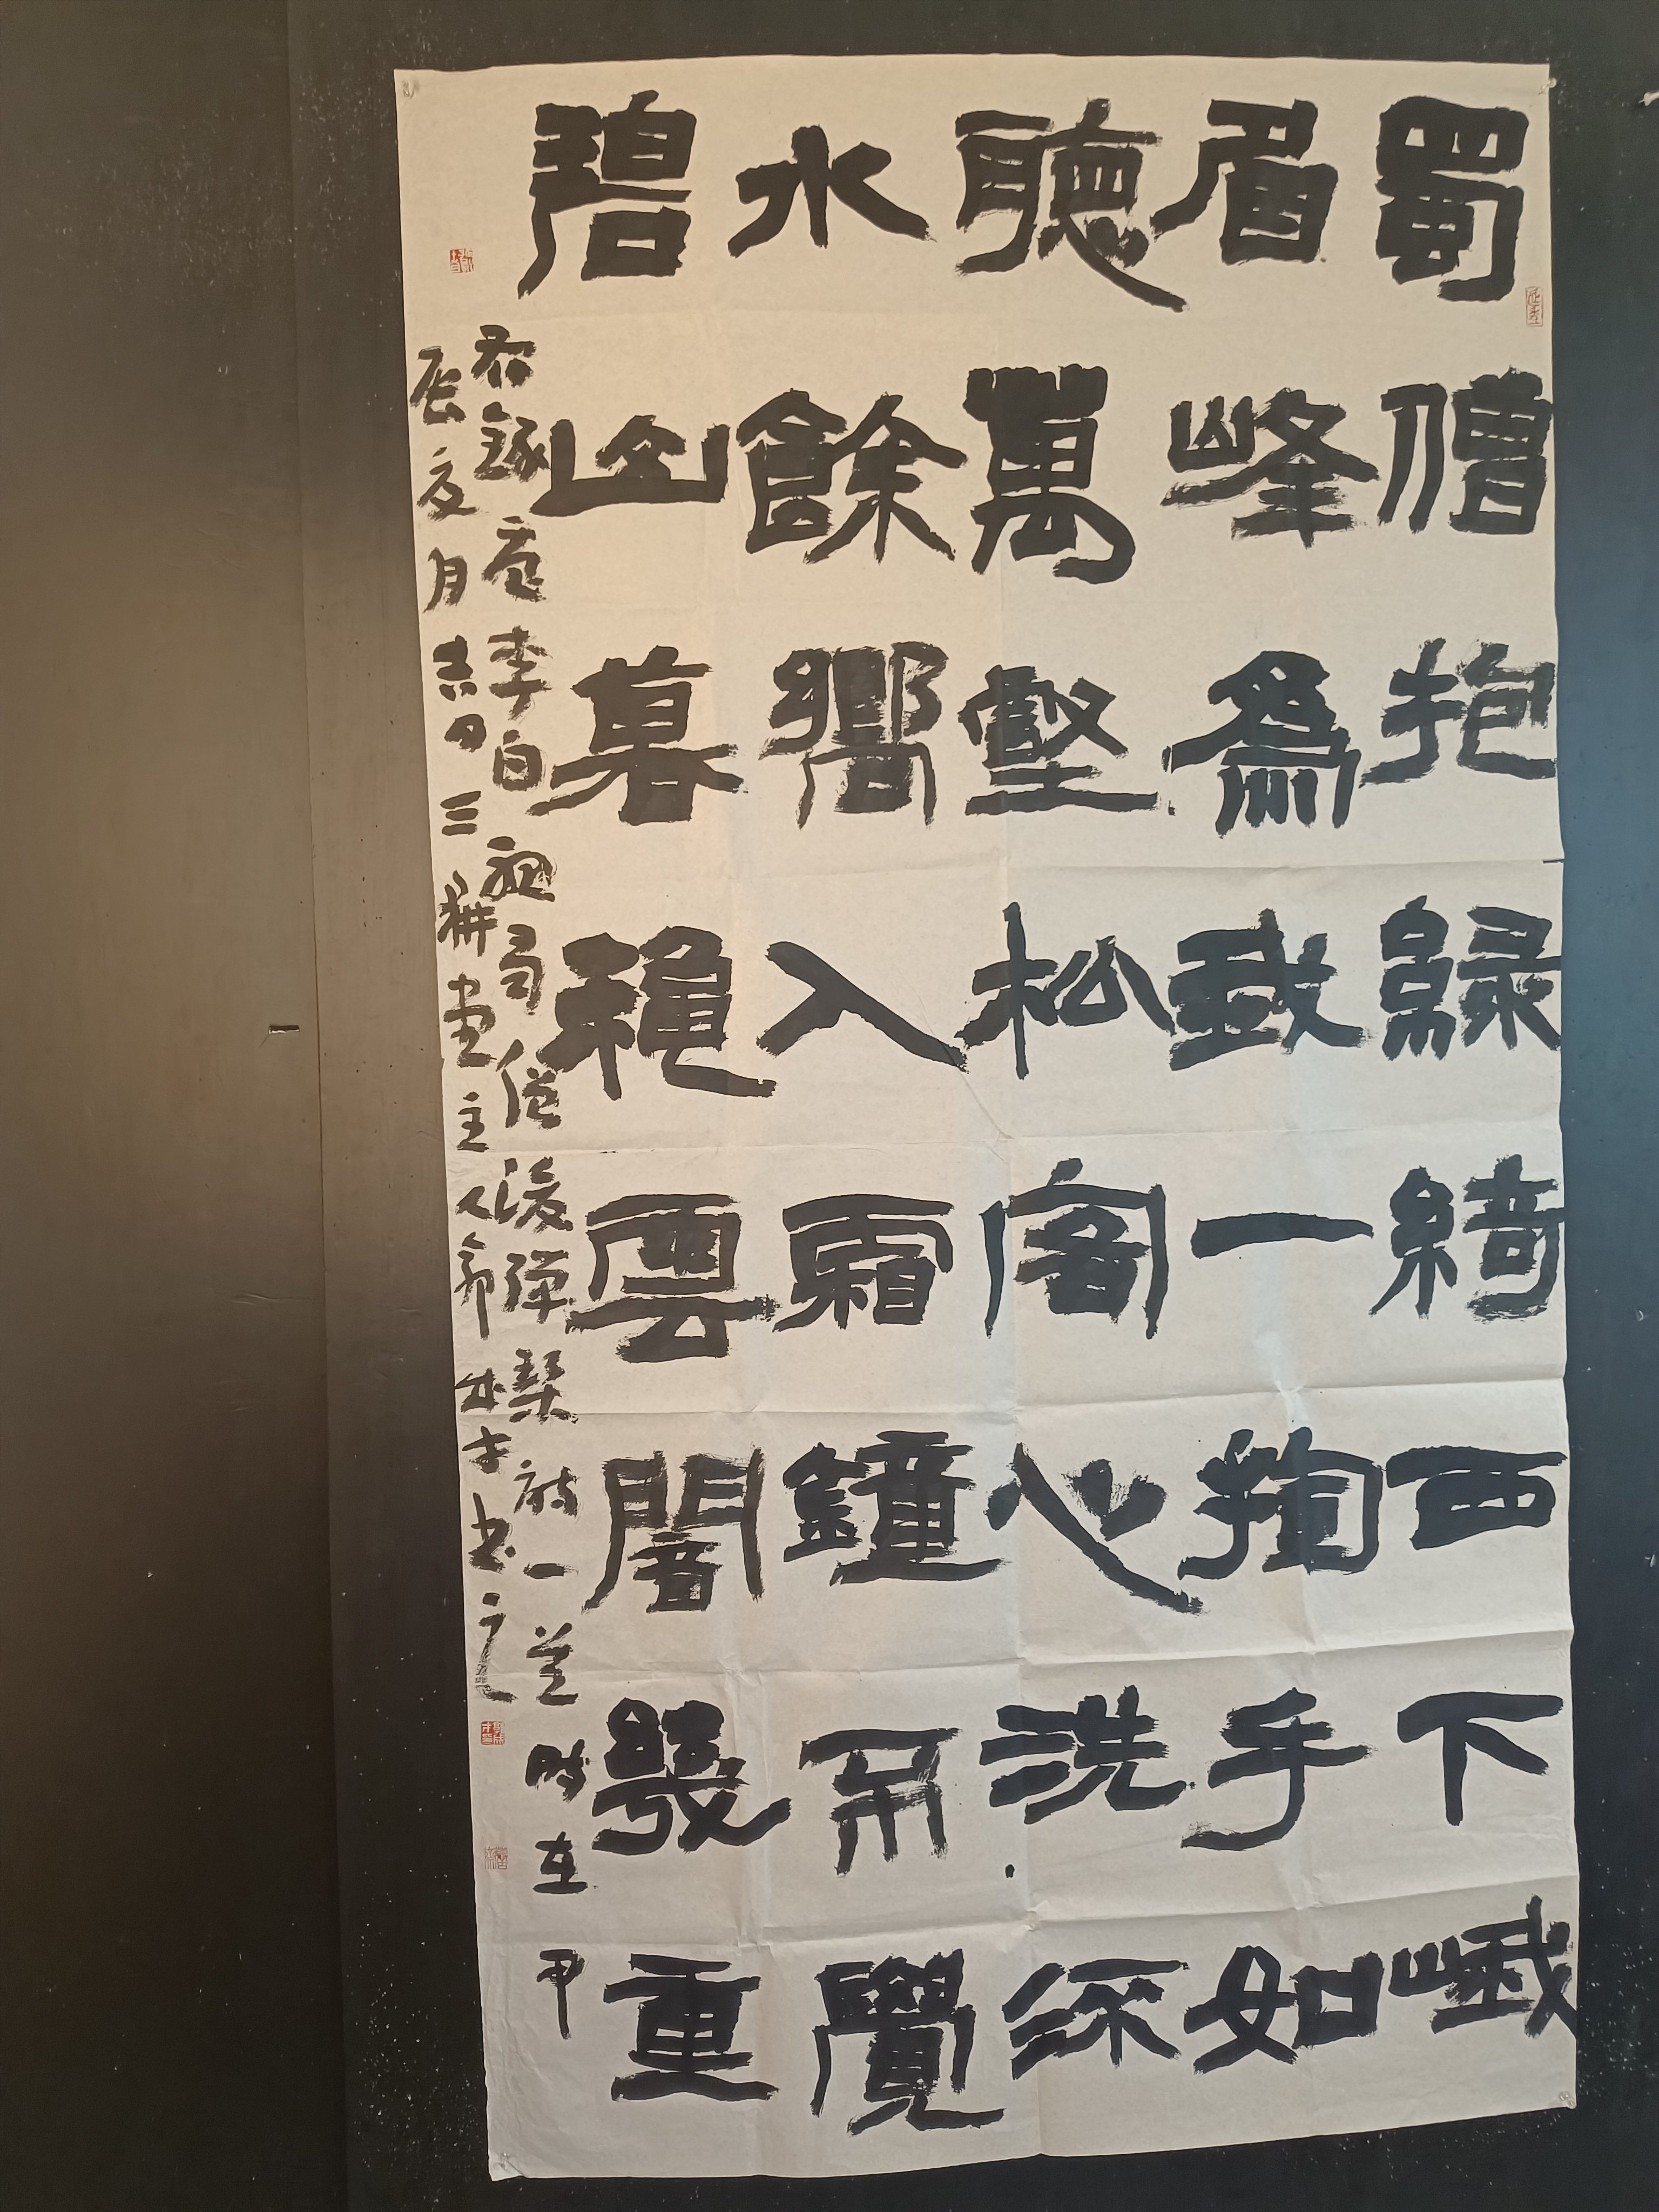 蜀僧抱綠綺西下峨
眉峰爲我一揮手如
聽萬壑松客心洗流
水餘嚮入霜鐘不覺
碧山暮穐雲闇幾重
右錄唐李白聽蜀僧濬彈琴詩一首時在甲
辰夏月吉日三耕堂主人郭成才书之